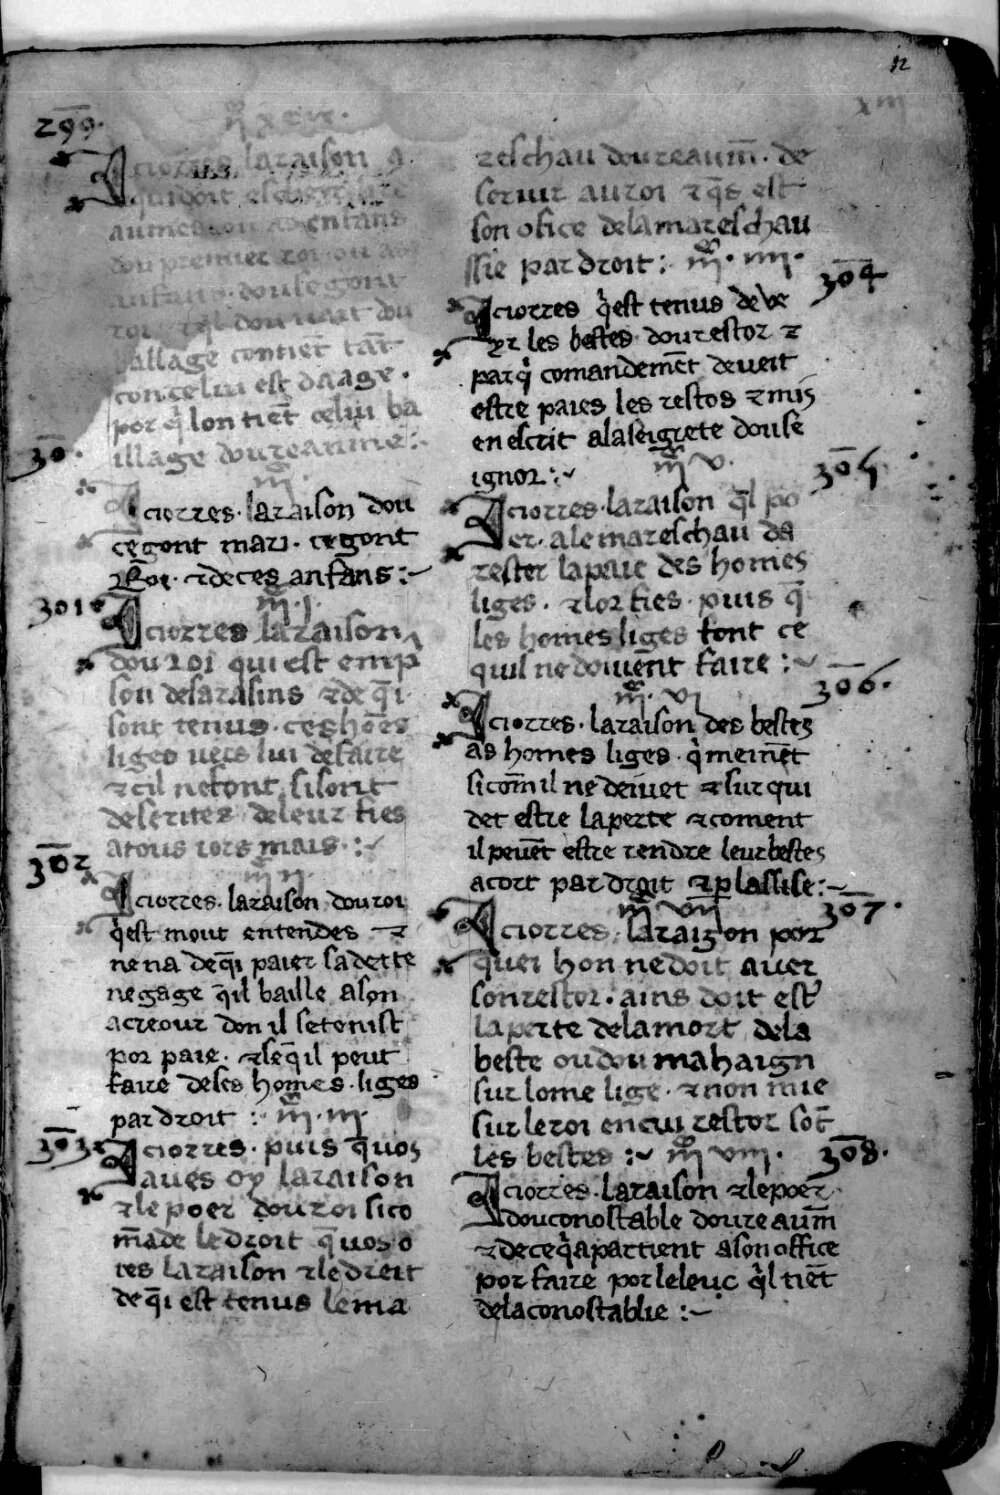 12
xiii
299
Aciorres laraison q̄
aumeson
dou premier roi ou
anfans dou segont
roi
ballage contient tāt
con celui est daage.
por q̇ lon tiēt celui ba
illage dou reaume:
30.
Aciorres. laraison dou
cēgont mari. cegont
Roi. ⁊de ces anfans:~
301
m̄.j.
Aciorres laraison
dou roi qui est enrp̄
son desarasins ⁊de q̄i
sont tenus. ces hoēs
liges vers lui de faire
⁊cil nefont. sisont
deserites deleur fies
atous iors mais.:~
302
m̄ ij.
Aciorres. laraison dou roi
q̇est mout entendes ⁊
ne na deq̄i paier sa dette
ne gage q̄il baille ason
acreour don il setenist
por paie. ⁊seq̄il peut
faire deses homes. liges
par droit : m̄.iij.
303
Aciorres. puis q̄uos
aues oy la raison
⁊le poer dou roi sico
m̄ade le droit q̄uos o
ies la raison ⁊le dreit
de q̄i est tenus lema
reschau dou reaum̄. de
seruir au roi ⁊q̄s est
son ofice dela mareschau
ssie par droit: m̄.iiij.
304
Aciorres q̇est tenus de ve
yr les bestes dou restor ⁊
par q̇ comandemēt deveit
estre paies les restos ⁊mis
en escrit ala seigrete douse
ignor:~
m̄ v.
305
Aciorres. laraison q̄l po
er. ale mareschau da
rester la paie des homes
liges. ⁊lor fies. puis q̄
les homes liges font ce
quil ne doiuēnt faire:~
306.
m̄. vj
Aciorres. laraison des bestes
as homes liges. q̇ meinēt
si com̄ il ne deiuet ⁊sur qui
det estre la perte ⁊coment
il peuēt estre rendre leur bestes
acort par droit ⁊p̱ lassise:~
m̄ vij
307.
Aciorres. laraison por
quei hon ne doit auer
son restor. ains doit est̉
la perte dela mort dela
beste ou dou mahaign
sur lome lige. ⁊non mie
sur le roi en cui restor sōt
les bestes :~ m̄ viij.
308.
Aciorres. laraison ⁊le poer
dou conostable dou reaum̄
⁊de ce q̇apartient a son office
por faire por le leuc q̇l tiēt
dela conostablie :~